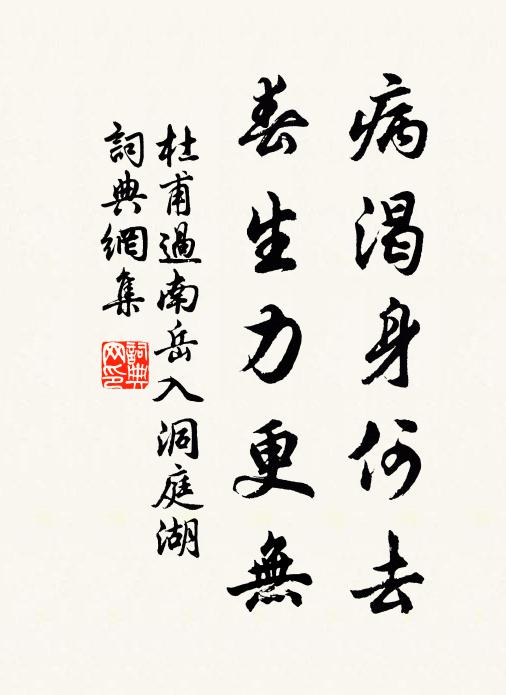 病渴身何去
春生力更無
杜甫過南岳入洞庭湖
詞典網集
詞典网印